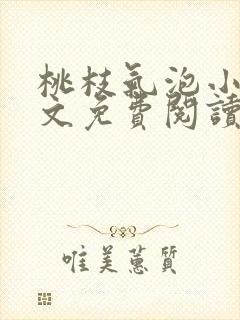 桃枝氣泡小
文免費閱讀
唯美蕙質